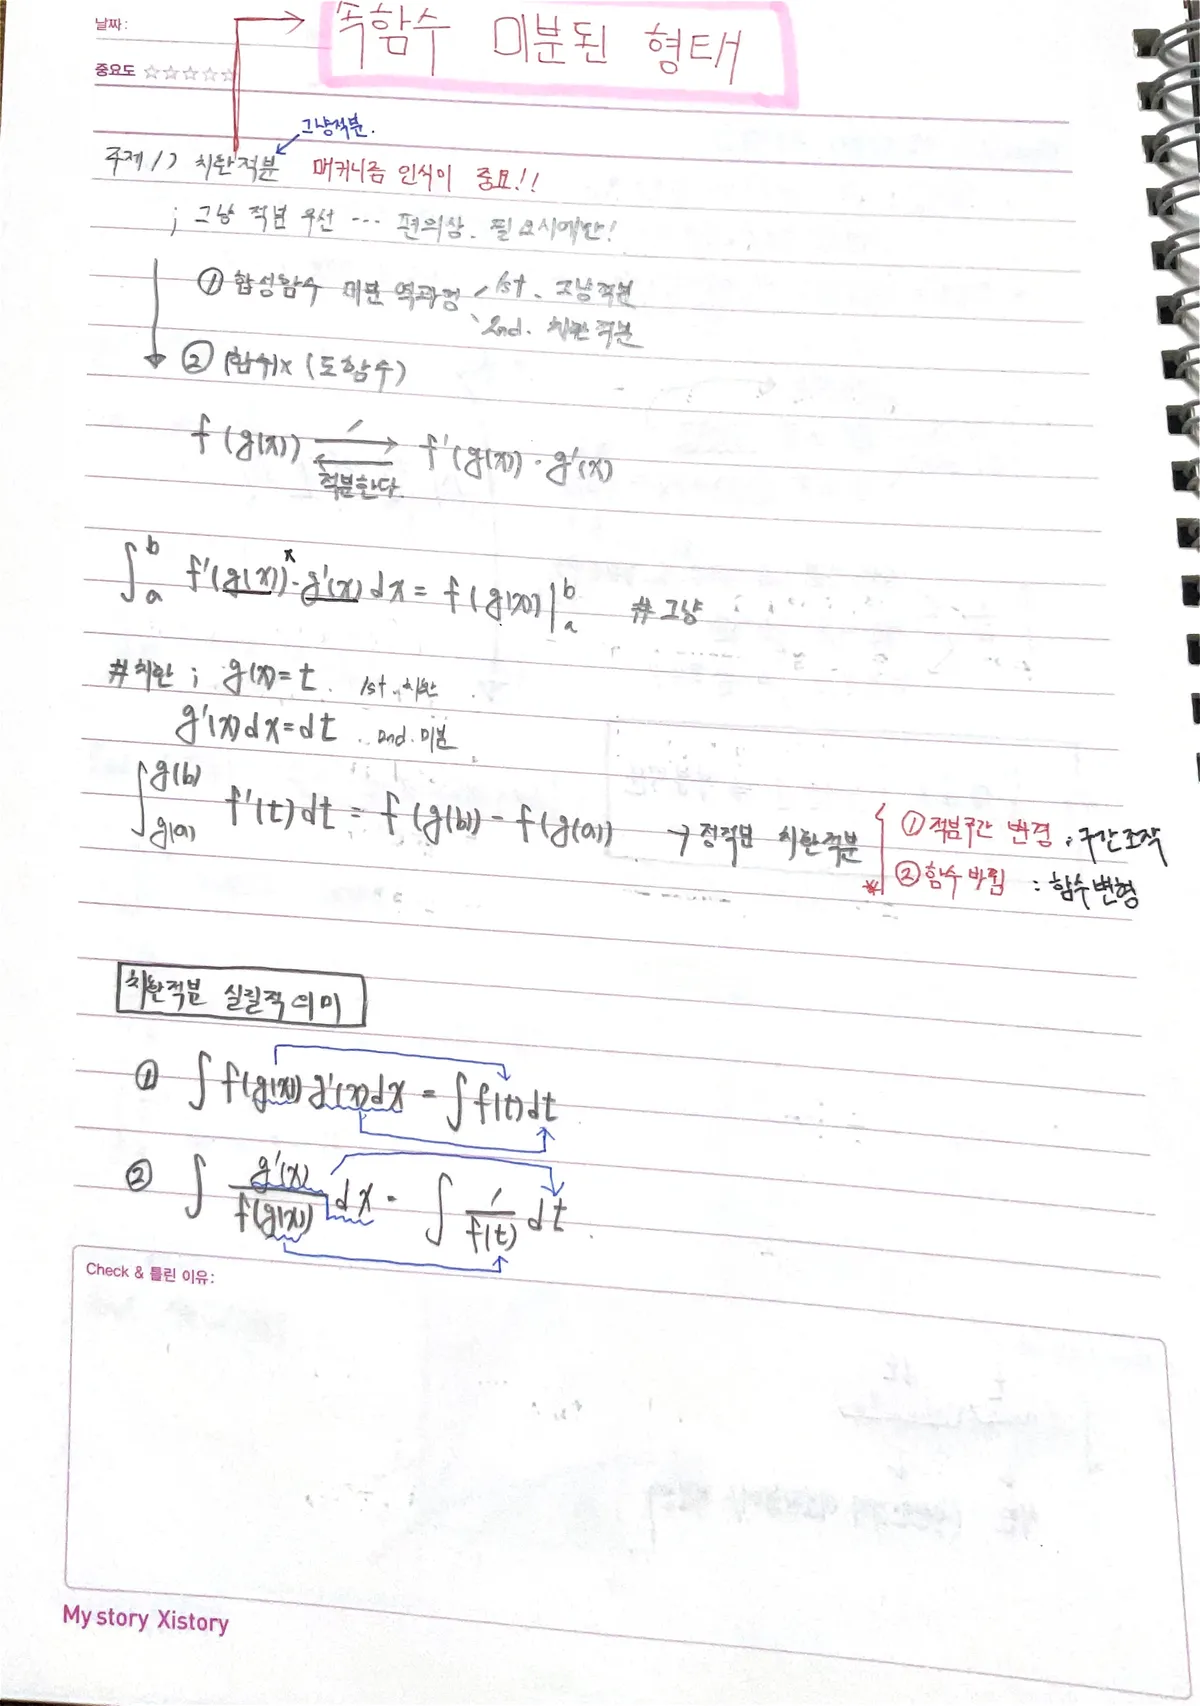 날짜:
속함수 미분된 형태
중요도 ☆☆☆☆☆
그냥적분.
주제 1) 치환적분 매커니즘 인식이 중요!!
; 그냥 적분 우선 … 편의상. 필요시에만!
① 합성함수 미분 역과정 1st. 그냥적분
2nd. 치환적분
② (함수)x (도함수)
f(g(x)) f'(g(x))·g'(x)
적분한다.
∫_a^b f'(g(x))·g'(x)dx = f(g(x))|_a^b #그냥
#치환 ; g(x)=t. 1st. 치환
g'(x)dx=dt. 2nd. 미분
∫_{g(a)}^{g(b)} f'(t)dt = f(g(b)) - f(g(a)) → 정적분 치환적분 ① 적분구간 변경 : 구간조작
* ② 함수 바뀜 : 함수변형
치환적분 실질적 의미
① ∫f(g(x))g'(x)dx = ∫f(t)dt
② ∫ g'(x)/f(g(x)) dx = ∫ 1/f(t) dt
Check & 틀린 이유:
My story Xistory